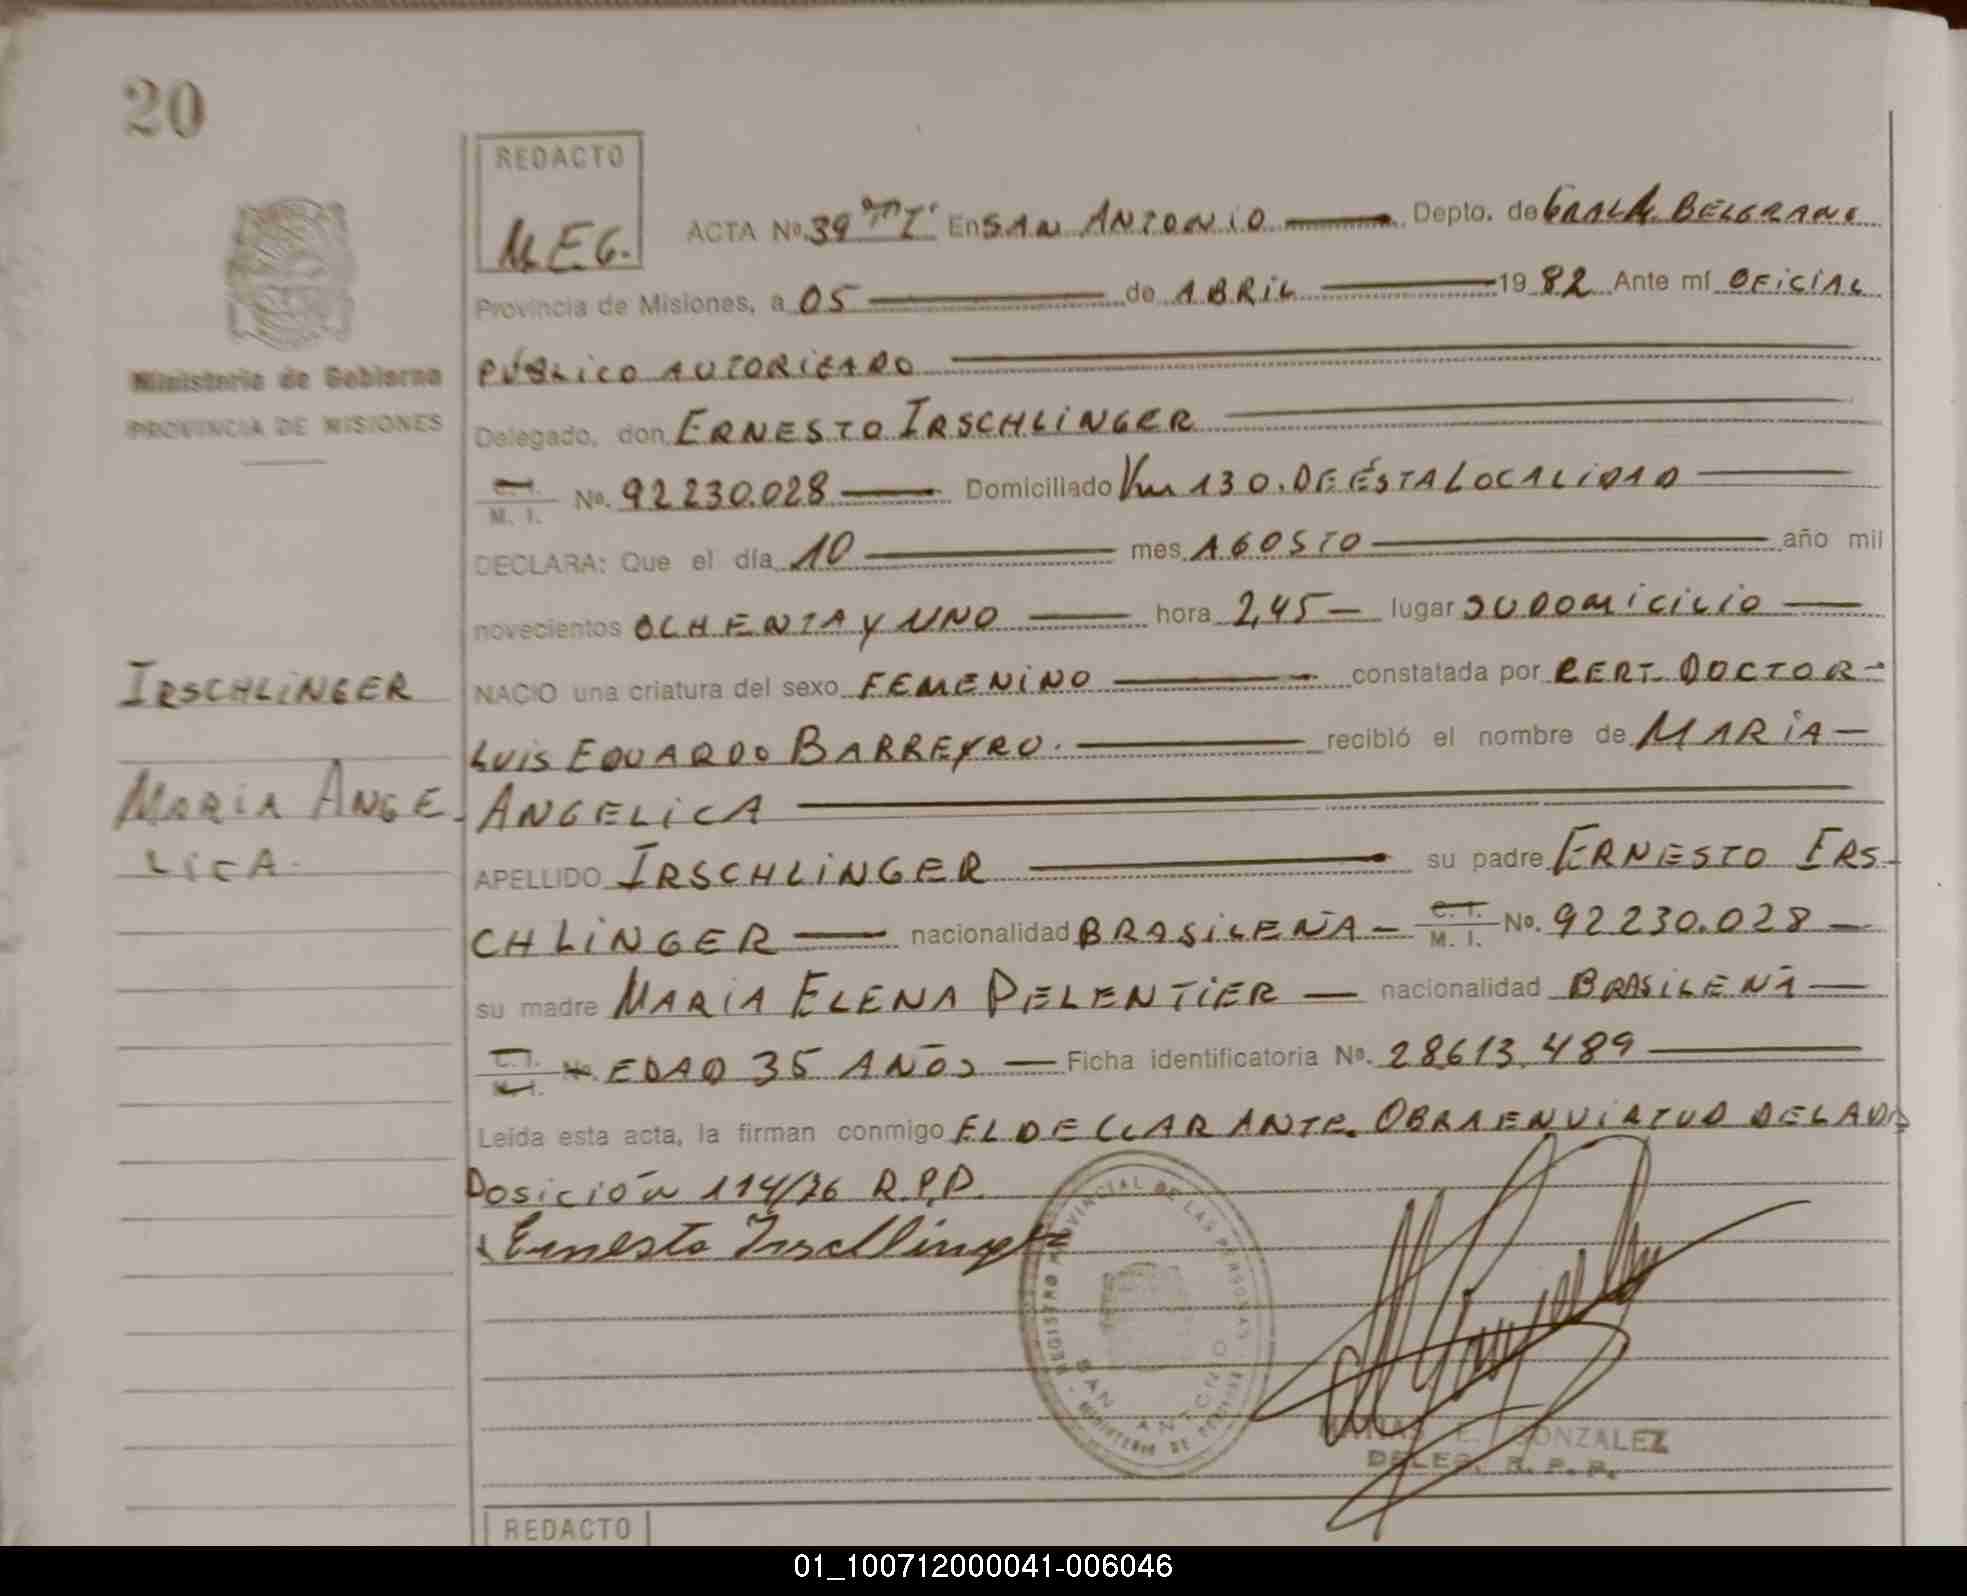 20
REDACTO
M.E.G.
ACTA Nº 39 En SAN ANTONIO Depto. de GRAL. BELGRANO
Provincia de Misiones, a 05 de ABRIL 1982 Ante mí OFICIAL
PÚBLICO AUTORIZADO
Delegado, don ERNESTO IRSCHLINGER
C. I.
M. I. Nº. 92230.028 Domiciliado Km 130. DE ÉSTA LOCALIDAD
DECLARA: Que el día 10 mes AGOSTO año mil
novecientos OCHENTA Y UNO hora 2,45 lugar SU DOMICILIO
NACIO una criatura del sexo FEMENINO constatada por CERT. DOCTOR
LUIS EDUARDO BARREYRO. recibió el nombre de MARIA
ANGELICA
APELLIDO IRSCHLINGER su padre ERNESTO IRS-
CHLINGER nacionalidad BRASILEÑA C. I. M. I. Nº. 92230.028
su madre MARIA ELENA PELENTIER nacionalidad BRASILEÑA
C. I. M. I. Nº. EDAD 35 AÑOS Ficha identificatoria Nº. 28613.489
Leída esta acta, la firman conmigo EL DECLARANTE. OBRA EN VIRTUD DE LA DIS
POSICIÓN 114/76 R.P.P.
Ernesto Irschlinger
REGISTRO PROVINCIAL DE LAS PERSONAS
SAN ANTONIO
MINISTERIO DE
E. GONZALEZ
DELEG. R. P. P.
Ministerio de Gobierno
PROVINCIA DE MISIONES
IRSCHLINGER
MARIA ANGE-
LICA.
REDACTO
01_100712000041-006046